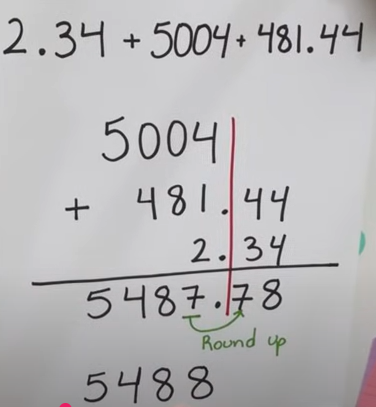 2.34 + 5004 + 481.44
5004
+ 481.44
2.34
5487.78
Round up
5488